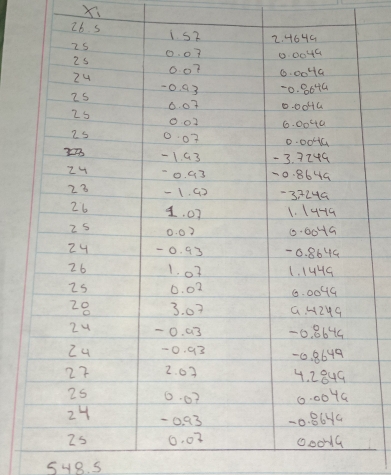 Xi
26.5 1.57 2.4649
25 0.07 0.0049
25 0.07 0.0049
24 -0.93 -0.8649
25 0.07 0.0049
25 0.07 0.0049
25 0.07 0.0049
23 -1.93 -3.7249
24 -0.93 -0.8649
23 -1.93 -3.7249
26 1.07 1.1449
25 0.07 0.0049
24 -0.93 -0.8649
26 1.07 1.1449
25 0.07 0.0049
28 3.07 9.4249
24 -0.93 -0.8649
24 -0.93 -0.8649
27 2.07 4.2849
25 0.07 0.0049
24 -0.93 -0.8649
25 0.07 0.0049
548.5